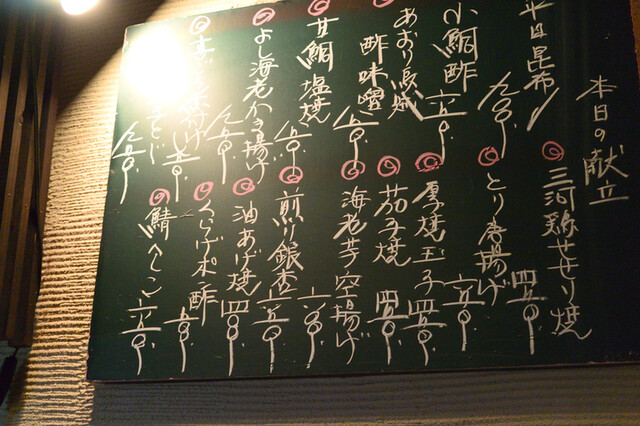 本日の献立
平目昆布〆 九〇〇
小鯛酢 六五〇
あおり烏賊
酢味噌 八五〇
甘鯛塩焼 八五〇
よし海老かき揚げ 九五〇
三河鶏せせり焼 四五〇
とり唐揚げ 六五〇
厚焼玉子 四五〇
茄子焼 四五〇
海老芋空揚げ
煎り銀杏 六五〇
油あげ焼 四五〇
くらげポン酢
鯖へしこ 六五〇